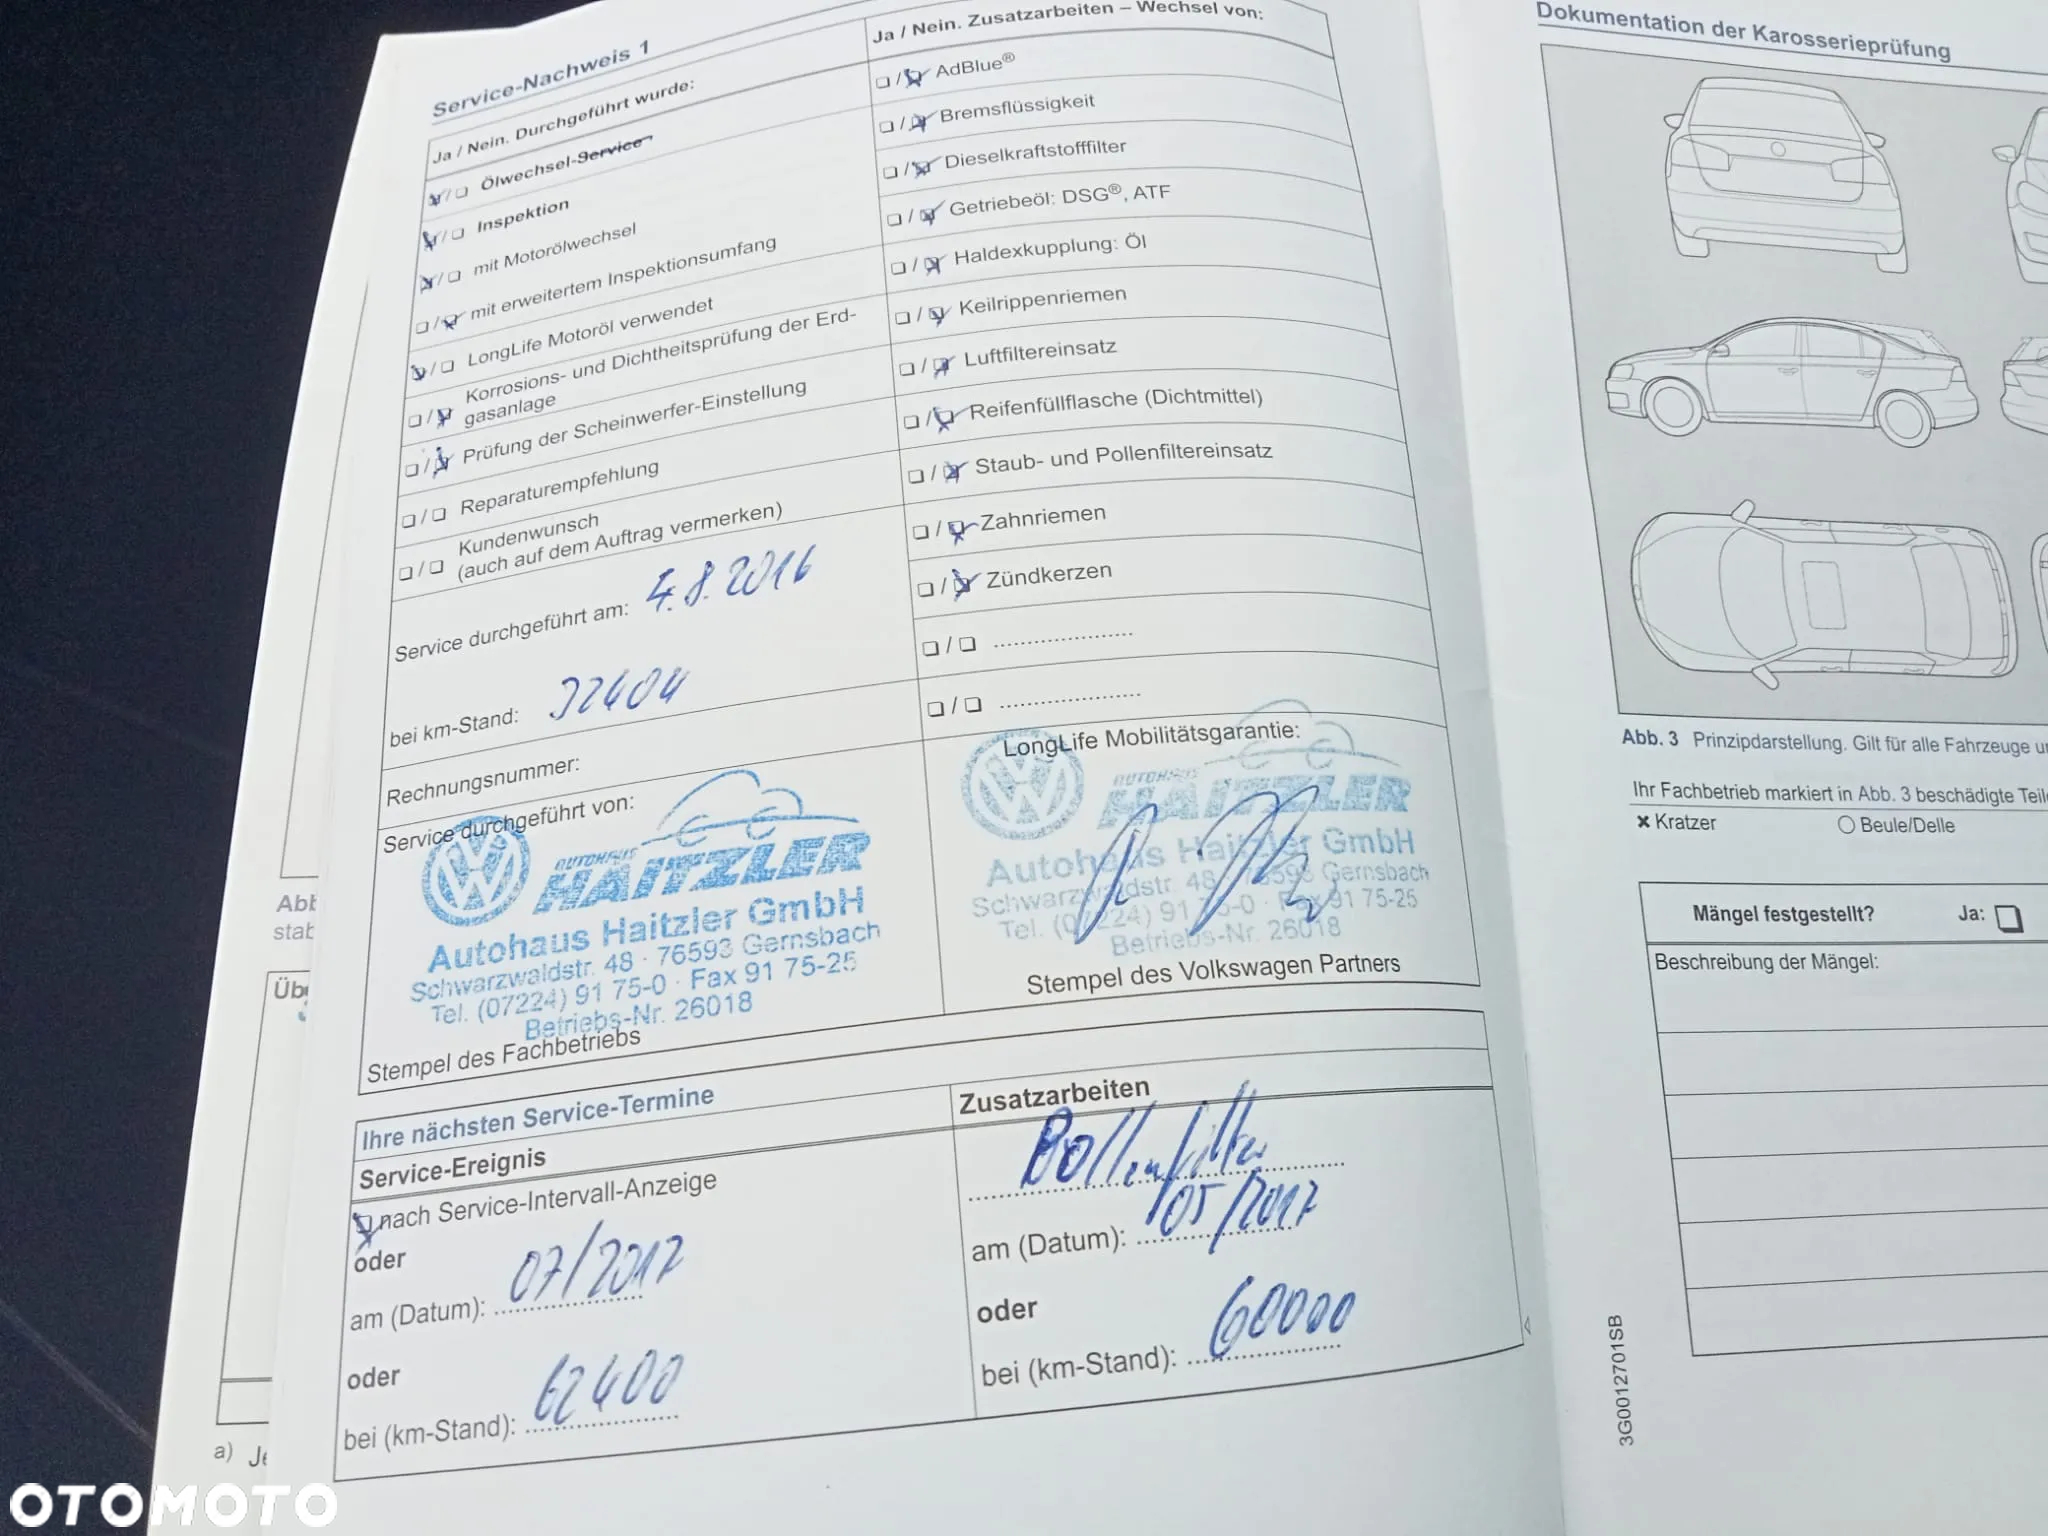 Service-Nachweis 1
Ja / Nein. Durchgeführt wurde:
Ölwechsel-Service
Inspektion
mit Motorölwechsel
mit erweitertem Inspektionsumfang
LongLife Motoröl verwendet
Korrosions- und Dichtheitsprüfung der Erd-
gasanlage
Prüfung der Scheinwerfer-Einstellung
Reparaturempfehlung
Kundenwunsch
(auch auf dem Auftrag vermerken)
Service durchgeführt am: 4.8.2016
bei km-Stand: 32404
Rechnungsnummer:
Service durchgeführt von:
AUTOHAUS
HAITZLER
Autohaus Haitzler GmbH
Schwarzwaldstr. 48 · 76593 Gernsbach
Tel. (07224) 91 75-0 · Fax 91 75-25
Betriebs-Nr. 26018
Stempel des Fachbetriebs
Ja / Nein. Zusatzarbeiten – Wechsel von:
AdBlue®
Bremsflüssigkeit
Dieselkraftstofffilter
Getriebeöl: DSG®, ATF
Haldexkupplung: Öl
Keilrippenriemen
Luftfiltereinsatz
Reifenfüllflasche (Dichtmittel)
Staub- und Pollenfiltereinsatz
Zahnriemen
Zündkerzen
LongLife Mobilitätsgarantie:
AUTOHAUS
HAITZLER
Autohaus Haitzler GmbH
Schwarzwaldstr. 48 · 76593 Gernsbach
Tel. (07224) 91 75-0 · Fax 91 75-25
Betriebs-Nr. 26018
Stempel des Volkswagen Partners
Ihre nächsten Service-Termine
Service-Ereignis
nach Service-Intervall-Anzeige
oder
am (Datum): 07/2017
oder
bei (km-Stand): 62400
Zusatzarbeiten
Pollenfilter
am (Datum): 05/2017
oder
bei (km-Stand): 60000
Dokumentation der Karosserieprüfung
Abb. 3 Prinzipdarstellung. Gilt für alle Fahrzeuge
Ihr Fachbetrieb markiert in Abb. 3 beschädigte Teile
Kratzer
Beule/Delle
Mängel festgestellt? Ja:
Beschreibung der Mängel:
3G0012701SB
Abb
stab
Übe
a) Je
OTOMOTO